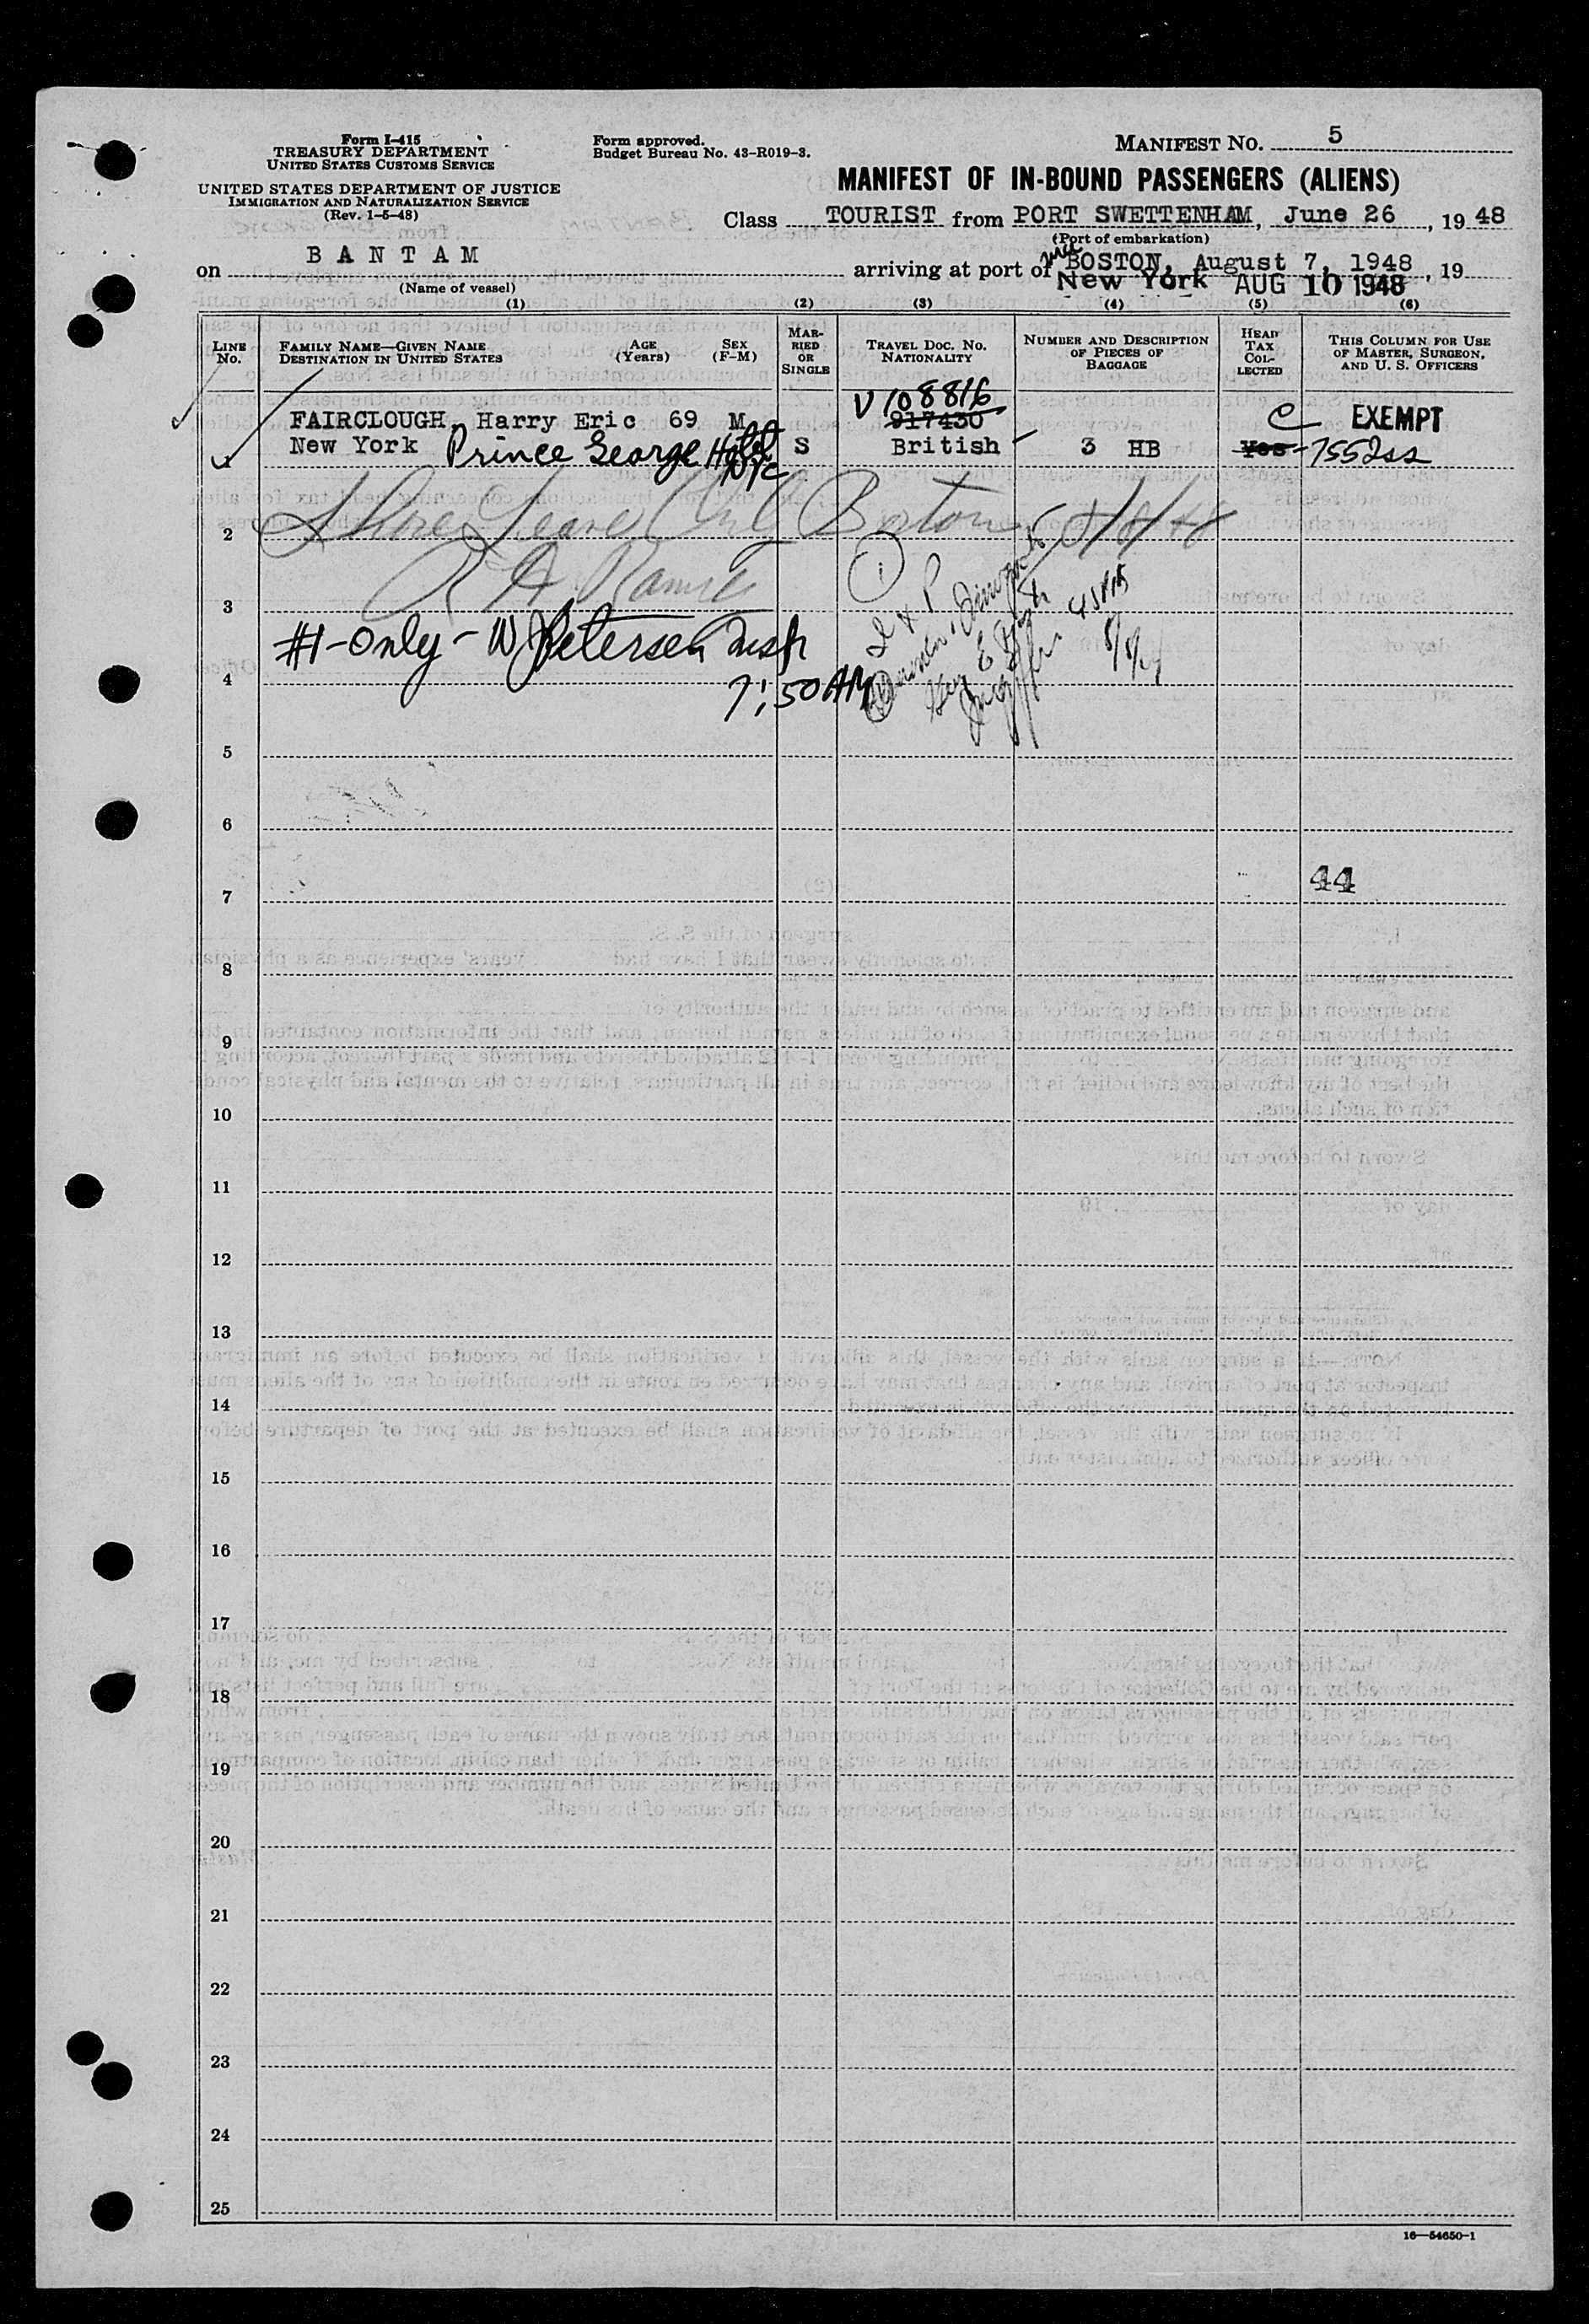 Form I-415
TREASURY DEPARTMENT
UNITED STATES CUSTOMS SERVICE
UNITED STATES DEPARTMENT OF JUSTICE
IMMIGRATION AND NATURALIZATION SERVICE
(Rev. 1-5-48)
Form approved.
Budget Bureau No. 43-R019-3.
MANIFEST NO. 5
MANIFEST OF IN-BOUND PASSENGERS (ALIENS)
Class TOURIST from PORT SWETTENHAM, June 26, 1948
(Port of embarkation)
on BANTAM arriving at port of BOSTON, August 7, 1948, 19
(Name of vessel)
New York AUG 10 1948
(1) (2) (3) (4) (5) (6)
LINE No. FAMILY NAME—GIVEN NAME DESTINATION IN UNITED STATES AGE (Years) SEX (F-M) MARRIED OR SINGLE TRAVEL DOC. NO. NATIONALITY NUMBER AND DESCRIPTION OF PIECES OF BAGGAGE HEAD TAX COLLECTED THIS COLUMN FOR USE OF MASTER, SURGEON, AND U. S. OFFICERS
V108816
FAIRCLOUGH, Harry Eric 69 M 917430 C EXEMPT
1 New York Prince George Hotel S British 3 HB Yes
NYC
2 Shore Leave Only Boston 8/8/48
3
#1-only - W Petersen Insp
4 7:50 AM
5
6
7 44
8
9
10
11
12
13
14
15
16
17
18
19
20
21
22
23
24
25
16—54650-1